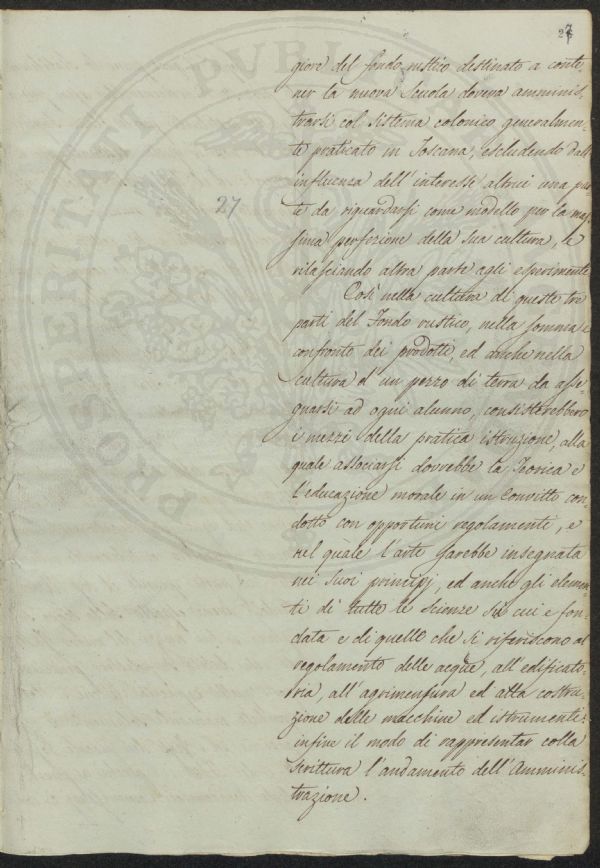 27
27
giore del fondo rustico destinato a conte-
ner la nuova Scuola doveva amminis,
trarsi col sistema colonico generalmen-
te praticato in Toscana, escludendo dall'
influenza dell'interesse altrui una par
te da riguardarsi come modello per la mas,
sima perfezione della sua cultura, e
rilasciando altra parte agli esperimenti
Così nella cultura di queste tre
parti del Fondo rustico, nella somma e
confronto dei prodotti, ed anche nella
cultura d'un pezzo di terra da asse-
gnarsi ad ogni alunno, consisterebbero
i mezzi della pratica istruzione, alla
quale associarsi dovrebbe la Teorica e
l'educazione morale in un Convitto con-
dotto con opportuni regolamenti, e
nel quale l'arte sarebbe insegnata
nei suoi principj, ed anche gli elemen-
ti di tutte le scienze su cui è fon-
data e di quelle che si riferiscono al
regolamento delle acque, all'edificato-
ria, all'agrimensura ed alla costru-
zione delle macchine ed istrumenti:
infine il modo di rappresentar colla
scrittura l'andamento dell'Amminis,
trazione.
PROSPERITATI PUBLICAE